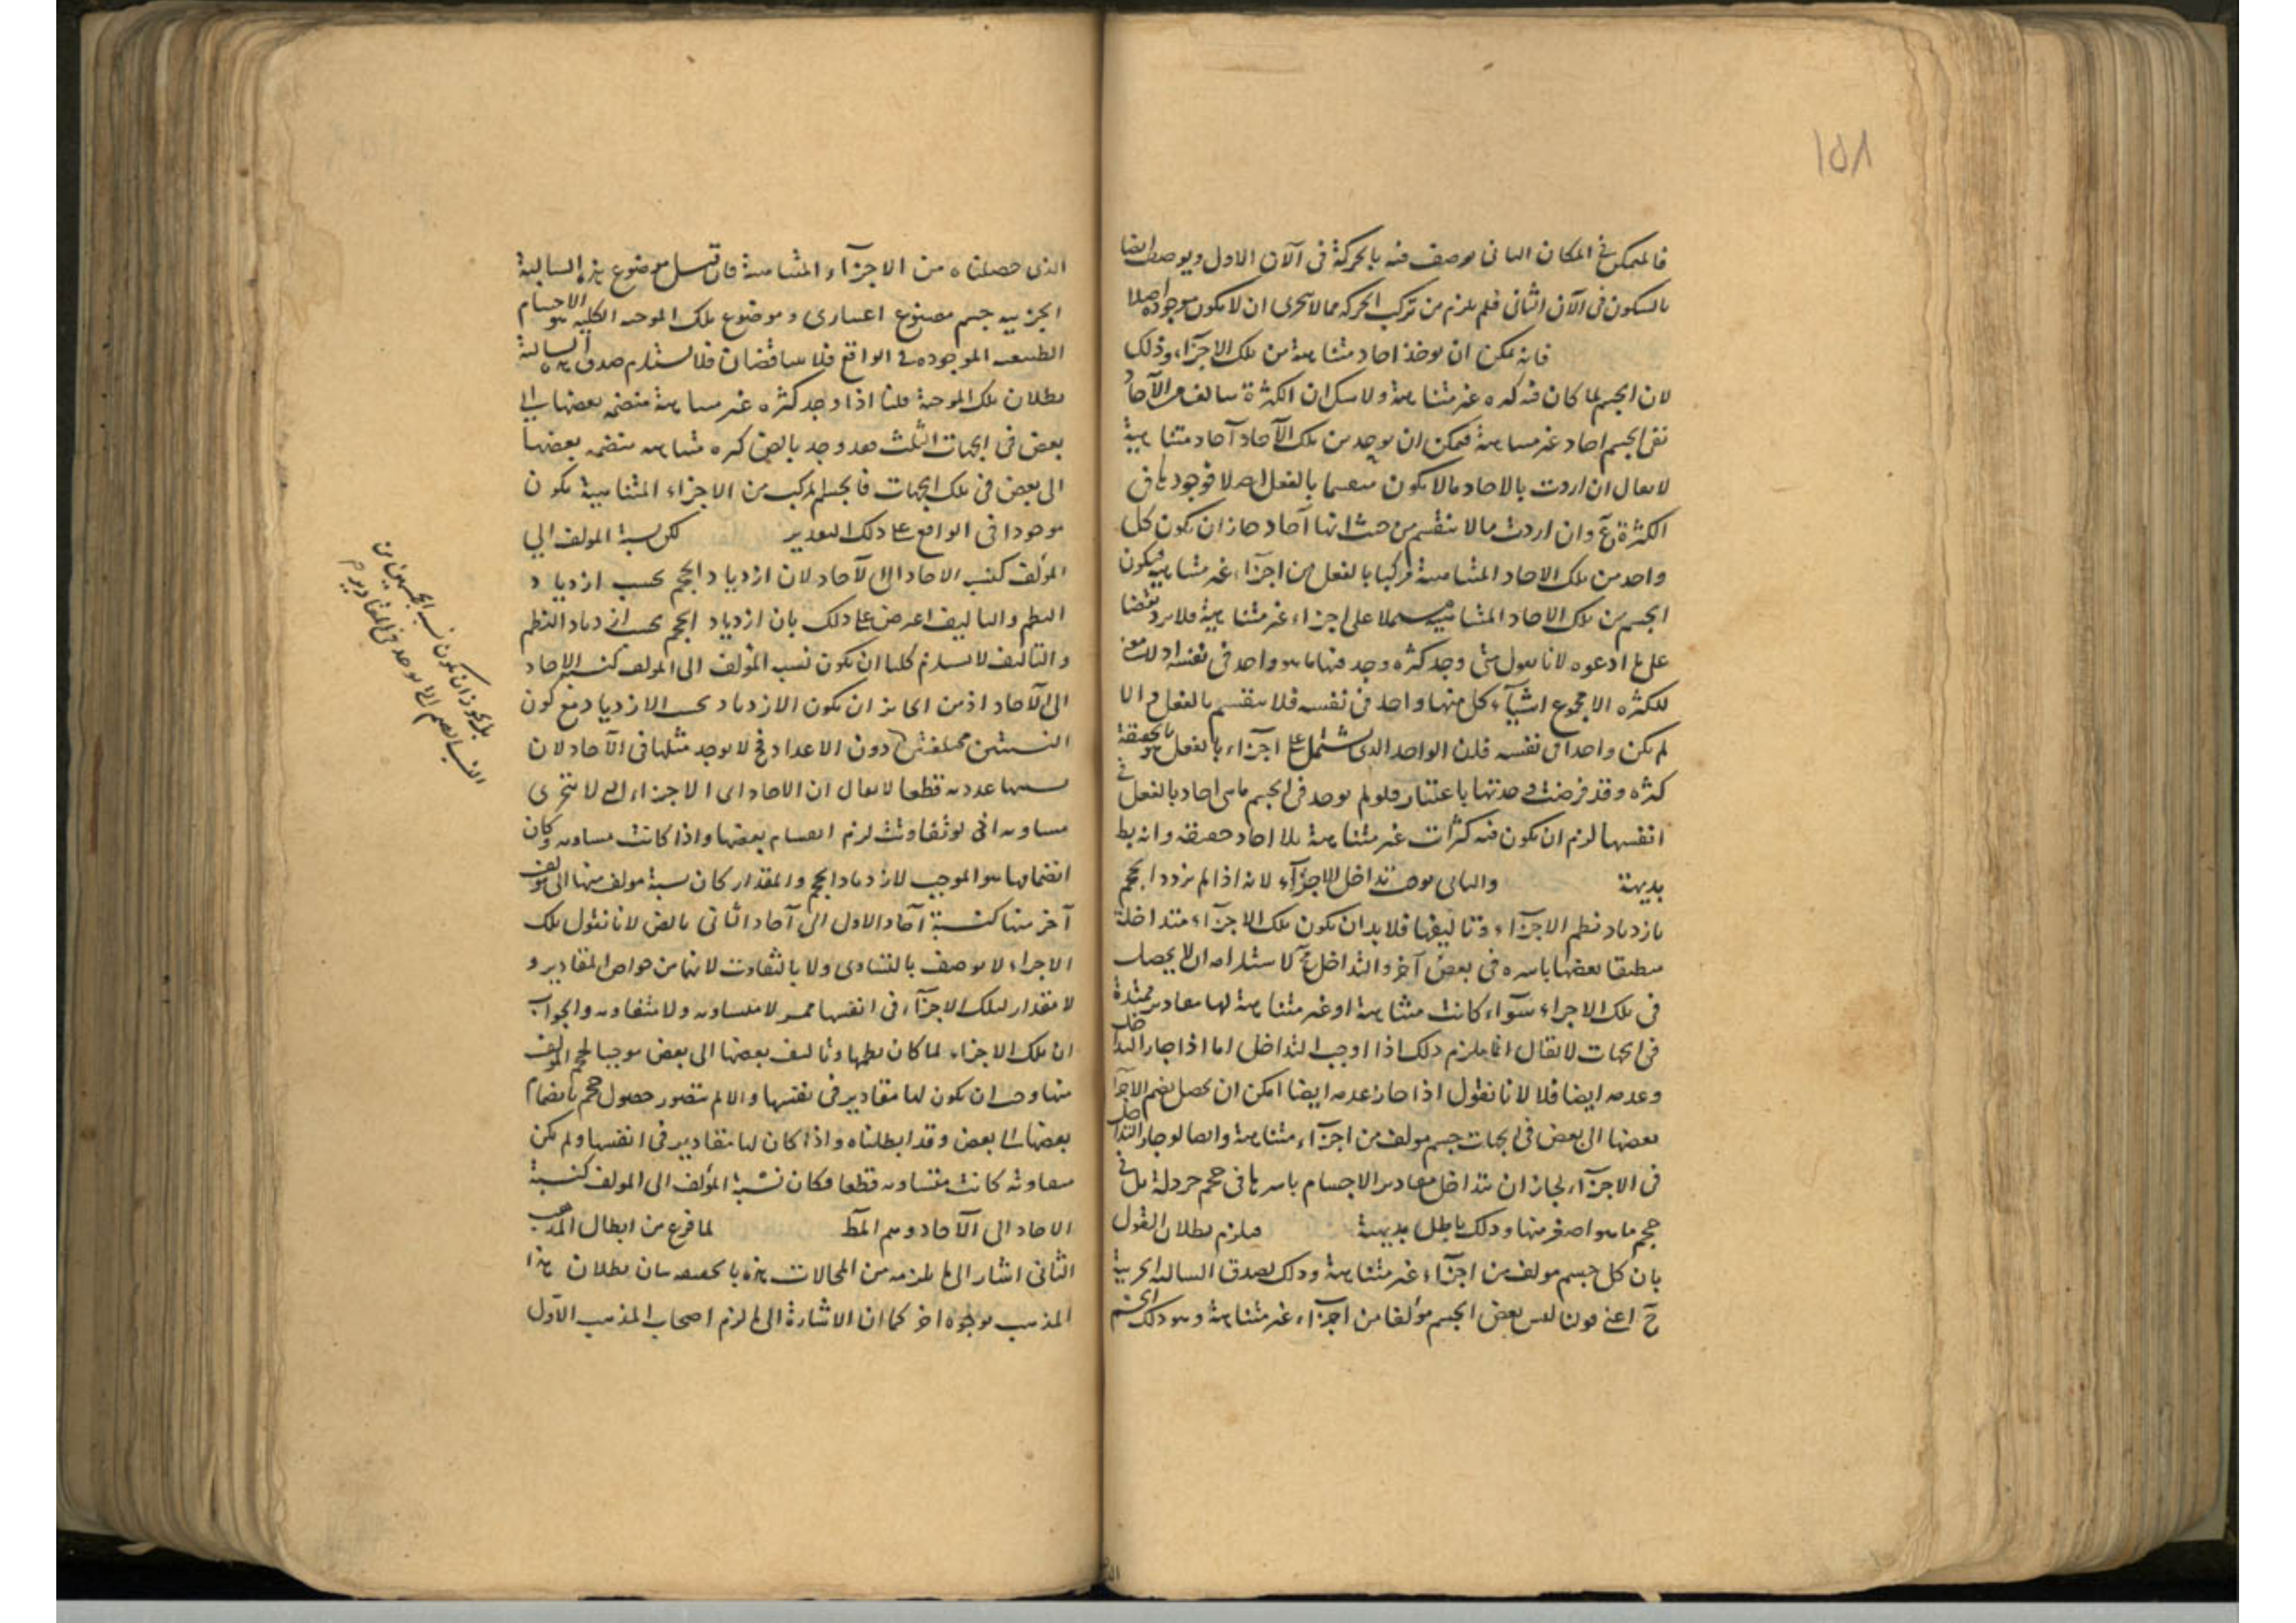 ١٥٨
فالمتمكن في المكان الثانى يوصف فيه بالحركة فى الآن الاول ويوصف ايضا
بالسكون فى الآن الثانى فلم يلزم من تركب الحركة مما لا يتجزى ان لا يكون موجودة اصلا
فانه يمكن ان يوخذ احاد متناهية من تلك الاجزاء وذلك
لان الجسم لما كان فيه كثرة غير متناهية ولا شك ان الكثرة يتالف من الآحاد
ففى الجسم احاد غير متناهية فيمكن ان يوجد من تلك الآحاد آحاد متناهية
لا يقال ان اردت بالاحاد ما لا يكون منقسما بالفعل اصلا فوجودها فى
الكثرة مح وان اردت ما لا ينقسم من حيث انها آحاد جاز ان يكون كل
واحد من تلك الاحاد المتناهية مركبا بالفعل من اجزاء غير متناهية فيكون
الجسم من تلك الاحاد المتناهية مشتملا على اجزاء غير متناهية فلا يرد نقضا
على ما ادعوه لانا نقول متى وجد كثرة وجد فيها ما هو واحد فى نفسه اذ لا معنى
للكثرة الا مجموع اشياء كل منها واحد فى نفسه فلا ينقسم بالفعل والا
لم يكن واحدا فى نفسه فان الواحد الذى يشتمل على اجزاء بالفعل هو بالحقيقة
كثرة وقد فرضت وحدتها باعتبار فلو لم يوجد فى الجسم ما هى احاد بالفعل فى
انفسها لزم ان يكون فيه كثرات غير متناهية بلا احاد حقيقة وانه بط
بديهة والثانى يوجب تداخل الاجزاء لانه اذا لم يزدد الحجم
بازدياد نظم الاجزاء وتاليفها فلا بد ان يكون تلك الاجزاء متداخلة
منطبقا بعضها باسره فى بعض آخر والتداخل مح لاستلزامه ان لا يحصل
فى تلك الاجزاء سواء كانت متناهية او غير متناهية لها مقادير ممتدة
فى الجهات لا يقال انما يلزم ذلك اذا اوجب التداخل اما اذا جاز التداخل
وعدمه ايضا فلا لانا نقول اذا جاز عدمه ايضا امكن ان يحصل بضم الاجزاء
بعضها الى بعض فى الجهات جسم مولف من اجزاء متناهية وايضا لو جاز التداخل
فى الاجزاء لجاز ان يتداخل مقادير الاجسام باسرها فى حجم خردلة بل فى
حجم ما هو اصغر منها وذلك باطل بديهة فيلزم بطلان القول
بان كل جسم مولف من اجزاء غير متناهية وذلك لصدق السالبة الجزئية
ح اعنى قولنا ليس بعض الجسم مؤلفا من اجزاء غير متناهية وهو ذلك الجسم
الذى حصلناه من الاجزاء المتناهية فان قيل موضوع هذه السالبة
الجزئية جسم مصنوع اعتبارى وموضوع تلك الموجبة الكلية هو الاجسام
الطبيعية الموجودة فى الواقع فلا يتناقضان فلا يستلزم صدق هذه السالبة
بطلان تلك الموجبة قلنا اذا وجد كثرة غير متناهية منضمة بعضها الى
بعض فى الجهات الثلث فقد وجد بالض كثرة متناهية منضمة بعضها
الى بعض فى تلك الجهات فالجسم المركب من الاجزاء المتناهية يكون
موجودا فى الواقع على ذلك التقدير لكن نسبة المولف الى
المؤلف كنسبة الاحاد الى الآحاد لان ازدياد الحجم بحسب ازدياد
النظم والتاليف اعترض على ذلك بان ازدياد الحجم بحسب ازدياد النظم
والتاليف لا يستلزم كليا ان يكون نسبة المؤلف الى المولف كنسبة الاحاد
الى الآحاد اذ من الجائز ان يكون الازدياد بحسب الازدياد مع كون
النسبتين مختلفتين دون الاعداد فح لا يوجد مثلها فى الآحاد لان
نسبها عددية قطعا لا يقال ان الاحاد اى الاجزاء التى لا تتجزى
متساوية اذ لو تفاوتت لزم انقسام بعضها واذا كانت متساوية وكان
انضمامها هو الموجب لازدياد الحجم والمقدار كان نسبة مولف منها الى مولف
آخر منها كنسبة آحاد الاول الى آحاد الثانى بالض لانا نقول تلك
الاجزاء لا يوصف بالتساوى ولا بالتفاوت لانها من خواص المقادير و
لا مقدار لتلك الاجزاء فى انفسها فهى لا متساوية ولا متفاوتة والجواب
ان تلك الاجزاء لما كان نظمها وتاليف بعضها الى بعض موجبا لحجم المولف
منها وجب ان يكون لها مقادير فى نفسها والا لم يتصور حصول حجم بانضمام
بعضها الى بعض وقد ابطلناه واذا كان لها مقادير فى انفسها ولم يكن
متفاوتة كانت متساوية قطعا فكان نسبة المؤلف الى المولف كنسبة
الاحاد الى الآحاد وهو المط لما فرغ من ابطال المذهب
الثانى اشار الى ما يلزمه من المحالات هذه بالحقيقة بيان بطلان هذا
المذهب بوجوه اخر كما ان الاشارة الى ما لزم اصحاب المذهب الاول
بل يجوز ان يكون نسبة الحجمين من
النسب الصم التى يوجد فى المقادير